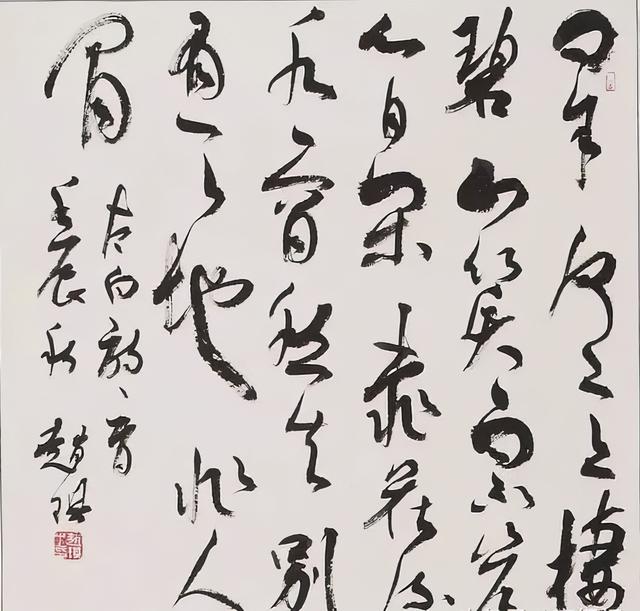 问余何意棲
碧山笑而不答
心自闲桃花流
水窅然去别
有天地非人
間
太白詩一首
壬辰秋 趙琪